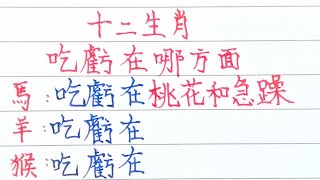 十二生肖
吃虧在哪方面
馬:吃虧在桃花和急躁
羊:吃虧在
猴:吃虧在